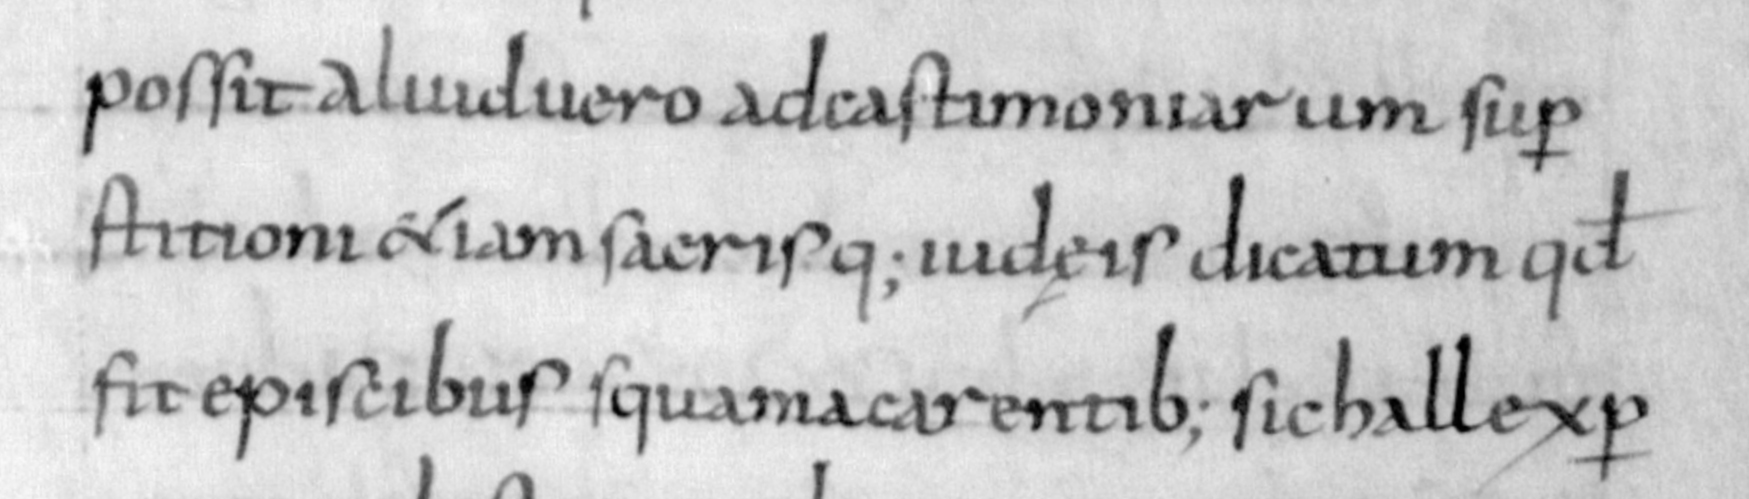 possit aliud uero ad castimoniarum sup̱
stitioni &iam sacrisq; iudęis dicatum qđ
fit episcibus squama carentib; sic hallexp̱